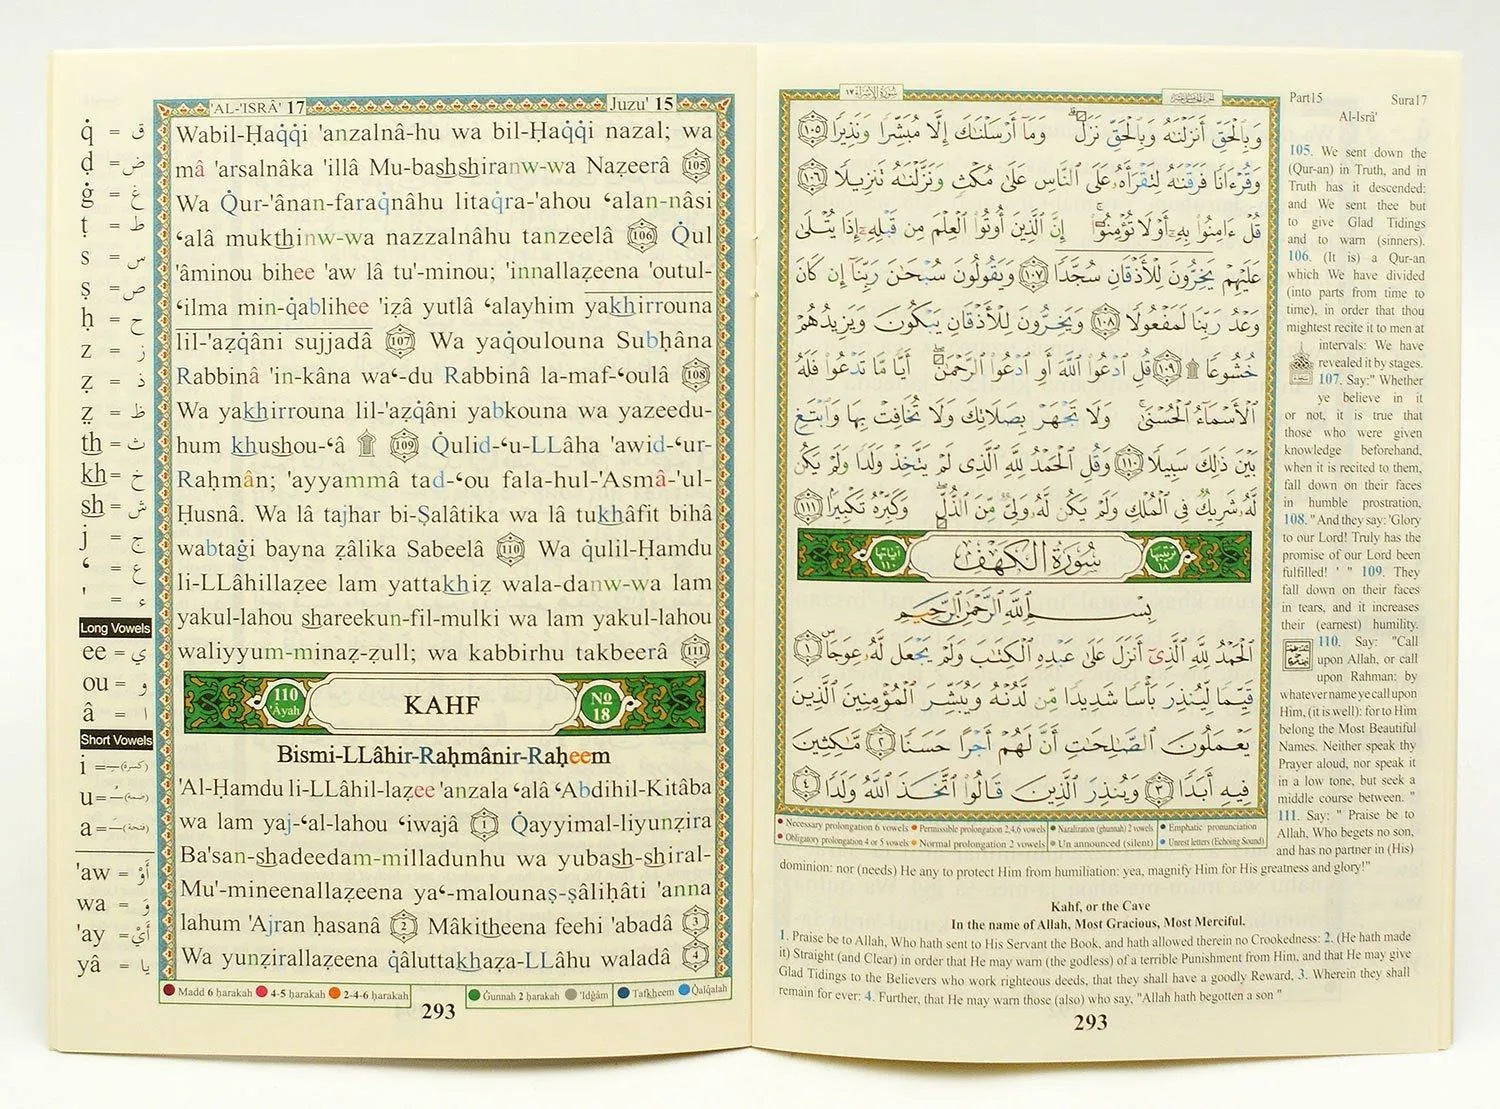 'AL-'ISRÂ' 17
Juzu' 15
q̇ = ق
ḍ = ض
ġ = غ
ṭ = ط
s = س
ṣ = ص
ḥ = ح
z = ز
ẓ = ذ
ẓ̈ = ظ
th = ث
kh = خ
sh = ش
j = ج
‘ = ع
' = ء
Long Vowels
ee = ي
ou = و
â = ا
Short Vowels
i = ـِ (كسرة)
u = ـُ (ضمة)
a = ـَ (فتحة)
'aw = أَوْ
wa = وَ
'ay = أَيْ
yâ = يا
Wabil-Ḥaq̇q̇i 'anzalnâ-hu wa bil-Ḥaq̇q̇i nazal; wa
mâ 'arsalnâka 'illâ Mu-bashshiranw-wa Naẓeerâ 105
Wa Q̇ur-'ânan-faraq̇nâhu litaq̇ra-'ahou ‘alan-nâsi
‘alâ mukthinw-wa nazzalnâhu tanzeelâ 106 Q̇ul
'âminou bihee 'aw lâ tu'-minou; 'innallaẓeena 'outul-
‘ilma min-q̇ablihee 'iẓâ yutlâ ‘alayhim yakhirrouna
lil-'aẓq̇âni sujjadâ 107 Wa yaq̇oulouna Subḥâna
Rabbinâ 'in-kâna wa‘-du Rabbinâ la-maf-‘oulâ 108
Wa yakhirrouna lil-'aẓq̇âni yabkouna wa yazeedu-
hum khushou-‘â ۩ 109 Q̇ulid-‘u-LLâha 'awid-‘ur-
Raḥmân; 'ayyammâ tad-‘ou fala-hul-'Asmâ-'ul-
Ḥusnâ. Wa lâ tajhar bi-Ṣalâtika wa lâ tukhâfit bihâ
wabtaġi bayna ẓâlika Sabeelâ 110 Wa q̇ulil-Ḥamdu
li-LLâhillaẓee lam yattakhiẓ wala-danw-wa lam
yakul-lahou shareekun-fil-mulki wa lam yakul-lahou
waliyyum-minaẓ-ẓull; wa kabbirhu takbeerâ 111
110 'Âyah
KAHF
No 18
Bismi-LLâhir-Raḥmânir-Raḥeem
'Al-Ḥamdu li-LLâhil-laẓee 'anzala ‘alâ ‘Abdihil-Kitâba
wa lam yaj-‘al-lahou ‘iwajâ 1 Q̇ayyimal-liyunẓira
Ba'san-shadeedam-milladunhu wa yubash-shiral-
Mu'-mineenallaẓeena ya‘-malounaṣ-ṣâliḥâti 'anna
lahum 'Ajran ḥasanâ 2 Mâkitheena feehi 'abadâ 3
Wa yunẓirallaẓeena q̇âluttakhaẓa-LLâhu waladâ 4
Madd 6 ḥarakah 4-5 ḥarakah 2-4-6 ḥarakah
Ġunnah 2 ḥarakah 'Idġâm Tafkheem Q̇alq̇alah
293
سُورَةُ الإِسْرَاء ١٧
وَبِالْحَقِّ أَنزَلْنَٰهُ وَبِالْحَقِّ نَزَلَ ۗ وَمَا أَرْسَلْنَٰكَ إِلَّا مُبَشِّرًا وَنَذِيرًا ١٠٥
وَقُرْءَانًا فَرَقْنَٰهُ لِتَقْرَأَهُۥ عَلَى النَّاسِ عَلَىٰ مُكْثٍ وَنَزَّلْنَٰهُ تَنزِيلًا ١٠٦
قُلْ ءَامِنُوا۟ بِهِۦٓ أَوْ لَا تُؤْمِنُوٓا۟ ۚ إِنَّ الَّذِينَ أُوتُوا۟ الْعِلْمَ مِن قَبْلِهِۦٓ إِذَا يُتْلَىٰ
عَلَيْهِمْ يَخِرُّونَ لِلْأَذْقَانِ سُجَّدًا ١٠٧ وَيَقُولُونَ سُبْحَٰنَ رَبِّنَآ إِن كَانَ
وَعْدُ رَبِّنَا لَمَفْعُولًا ١٠٨ وَيَخِرُّونَ لِلْأَذْقَانِ يَبْكُونَ وَيَزِيدُهُمْ
خُشُوعًا ۩ ١٠٩ قُلِ ادْعُوا۟ اللَّهَ أَوِ ادْعُوا۟ الرَّحْمَٰنَ ۖ أَيًّا مَّا تَدْعُوا۟ فَلَهُ
الْأَسْمَآءُ الْحُسْنَىٰ ۚ وَلَا تَجْهَرْ بِصَلَاتِكَ وَلَا تُخَافِتْ بِهَا وَابْتَغِ
بَيْنَ ذَٰلِكَ سَبِيلًا ١١٠ وَقُلِ الْحَمْدُ لِلَّهِ الَّذِى لَمْ يَتَّخِذْ وَلَدًا وَلَمْ يَكُن
لَّهُۥ شَرِيكٌ فِى الْمُلْكِ وَلَمْ يَكُن لَّهُۥ وَلِىٌّ مِّنَ الذُّلِّ ۖ وَكَبِّرْهُ تَكْبِيرًا ١١١
ترتيبها ١٨
سُورَةُ الكَهْفِ
آياتها ١١٠
بِسْمِ اللَّهِ الرَّحْمَٰنِ الرَّحِيمِ
الْحَمْدُ لِلَّهِ الَّذِىٓ أَنزَلَ عَلَىٰ عَبْدِهِ الْكِتَٰبَ وَلَمْ يَجْعَل لَّهُۥ عِوَجَا ۜ ١
قَيِّمًا لِّيُنذِرَ بَأْسًا شَدِيدًا مِّن لَّدُنْهُ وَيُبَشِّرَ الْمُؤْمِنِينَ الَّذِينَ
يَعْمَلُونَ الصَّٰلِحَٰتِ أَنَّ لَهُمْ أَجْرًا حَسَنًا ٢ مَّٰكِثِينَ
فِيهِ أَبَدًا ٣ وَيُنذِرَ الَّذِينَ قَالُوا۟ اتَّخَذَ اللَّهُ وَلَدًا ٤
Necessary prolongation 6 vowels Permissible prolongation 2,4,6 vowels Nazalization (ghunnah) 2 vowels Emphatic pronunciation
Obligatory prolongation 4 or 5 vowels Normal prolongation 2 vowels Un announced (silent) Unrest letters (Echoing Sound)
Part15 Sura17
Al-Isrâ'
105. We sent down the
(Qur-an) in Truth, and in
Truth has it descended:
and We sent thee but
to give Glad Tidings
and to warn (sinners).
106. (It is) a Qur-an
which We have divided
(into parts from time to
time), in order that thou
mightest recite it to men at
intervals: We have
revealed it by stages.
107. Say:" Whether
ye believe in it
or not, it is true that
those who were given
knowledge beforehand,
when it is recited to them,
fall down on their faces
in humble prostration,
108. "And they say: 'Glory
to our Lord! Truly has the
promise of our Lord been
fulfilled! ' " 109. They
fall down on their faces
in tears, and it increases
their (earnest) humility.
110. Say: "Call
upon Allah, or call
upon Rahman: by
whatever name ye call upon
Him, (it is well): for to Him
belong the Most Beautiful
Names. Neither speak thy
Prayer aloud, nor speak it
in a low tone, but seek a
middle course between. "
111. Say: " Praise be to
Allah, Who begets no son,
and has no partner in (His)
dominion: nor (needs) He any to protect Him from humiliation: yea, magnify Him for His greatness and glory!"
Kahf, or the Cave
In the name of Allah, Most Gracious, Most Merciful.
1. Praise be to Allah, Who hath sent to His Servant the Book, and hath allowed therein no Crookedness: 2. (He hath made
it) Straight (and Clear) in order that He may warn (the godless) of a terrible Punishment from Him, and that He may give
Glad Tidings to the Believers who work righteous deeds, that they shall have a goodly Reward, 3. Wherein they shall
remain for ever: 4. Further, that He may warn those (also) who say, "Allah hath begotten a son "
293